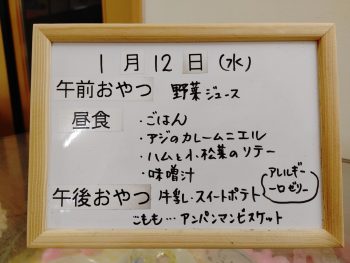 1月12日(水)
午前おやつ 野菜ジュース
昼食 ・ごはん
・アジのカレームニエル
・ハムと小松菜のソテー
・味噌汁
アレルギー
一口ゼリー
午後おやつ 牛乳・スイートポテト
こもも…アンパンマンビスケット